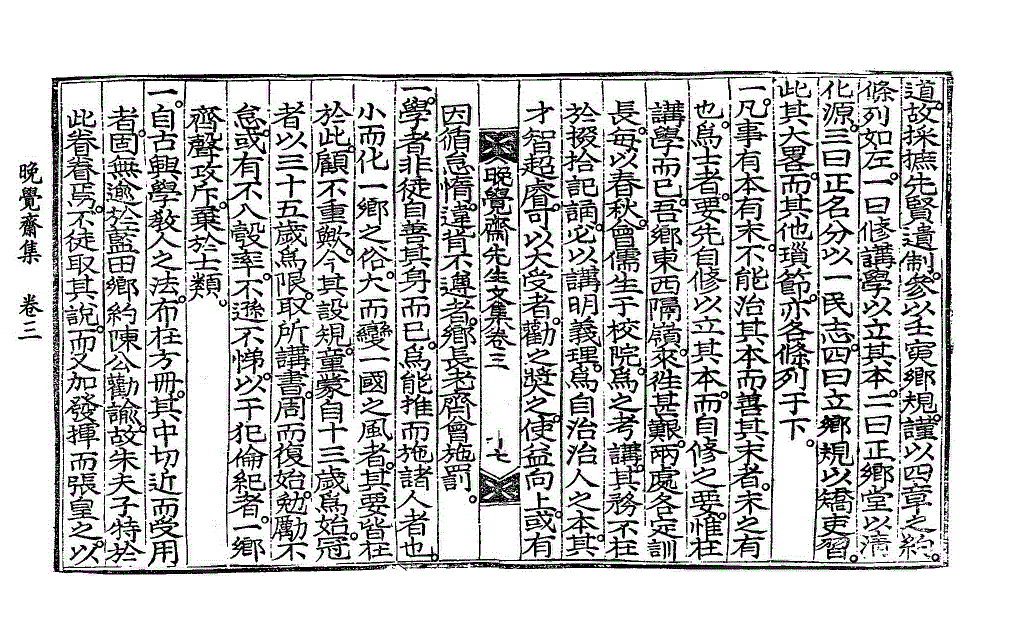 道故採摭先賢遺制參以壬寅鄕規謹以四章之約
條列如左一曰修講學以立其本二曰正鄕堂以淸
化源三曰正名分以一民志四曰立鄕規以矯吏習
此其大畧而其他瑣節亦各條列于下
一凡事有本有末不能治其本而善其末者未之有
也爲士者要先自修以立其本而自修之要惟在
講學而已吾鄕東西隔嶺來往甚艱兩處各定訓
長每以春秋會儒生于校院爲之考講其務不在
於掇拾記誦必以講明義理爲自治治人之本其
才智超睿可以大受者勸之奬之使益向上或有
晩覺齋先生文集卷三 十七
因循怠惰違背不遵者鄕長老齊會施罰
一學者非徒自善其身而已爲能推而施諸人者也
小而化一鄕之俗大而變一國之風者其要皆在
於此顧不重歟今其設規童蒙自十三歲爲始冠
者以三十五歲爲限取所講書周而復始勉勵不
怠或有不入彀率不遜不悌以干犯倫紀者一鄕
齊聲攻斥棄於士類
一自古興學敎人之法布在方冊其中切近而受用
者固無逾於藍田鄕約陳公勸諭故朱夫子特於
此眷眷焉不徒取其說而又加發揮而張皇之以
晚覺齋集 卷三